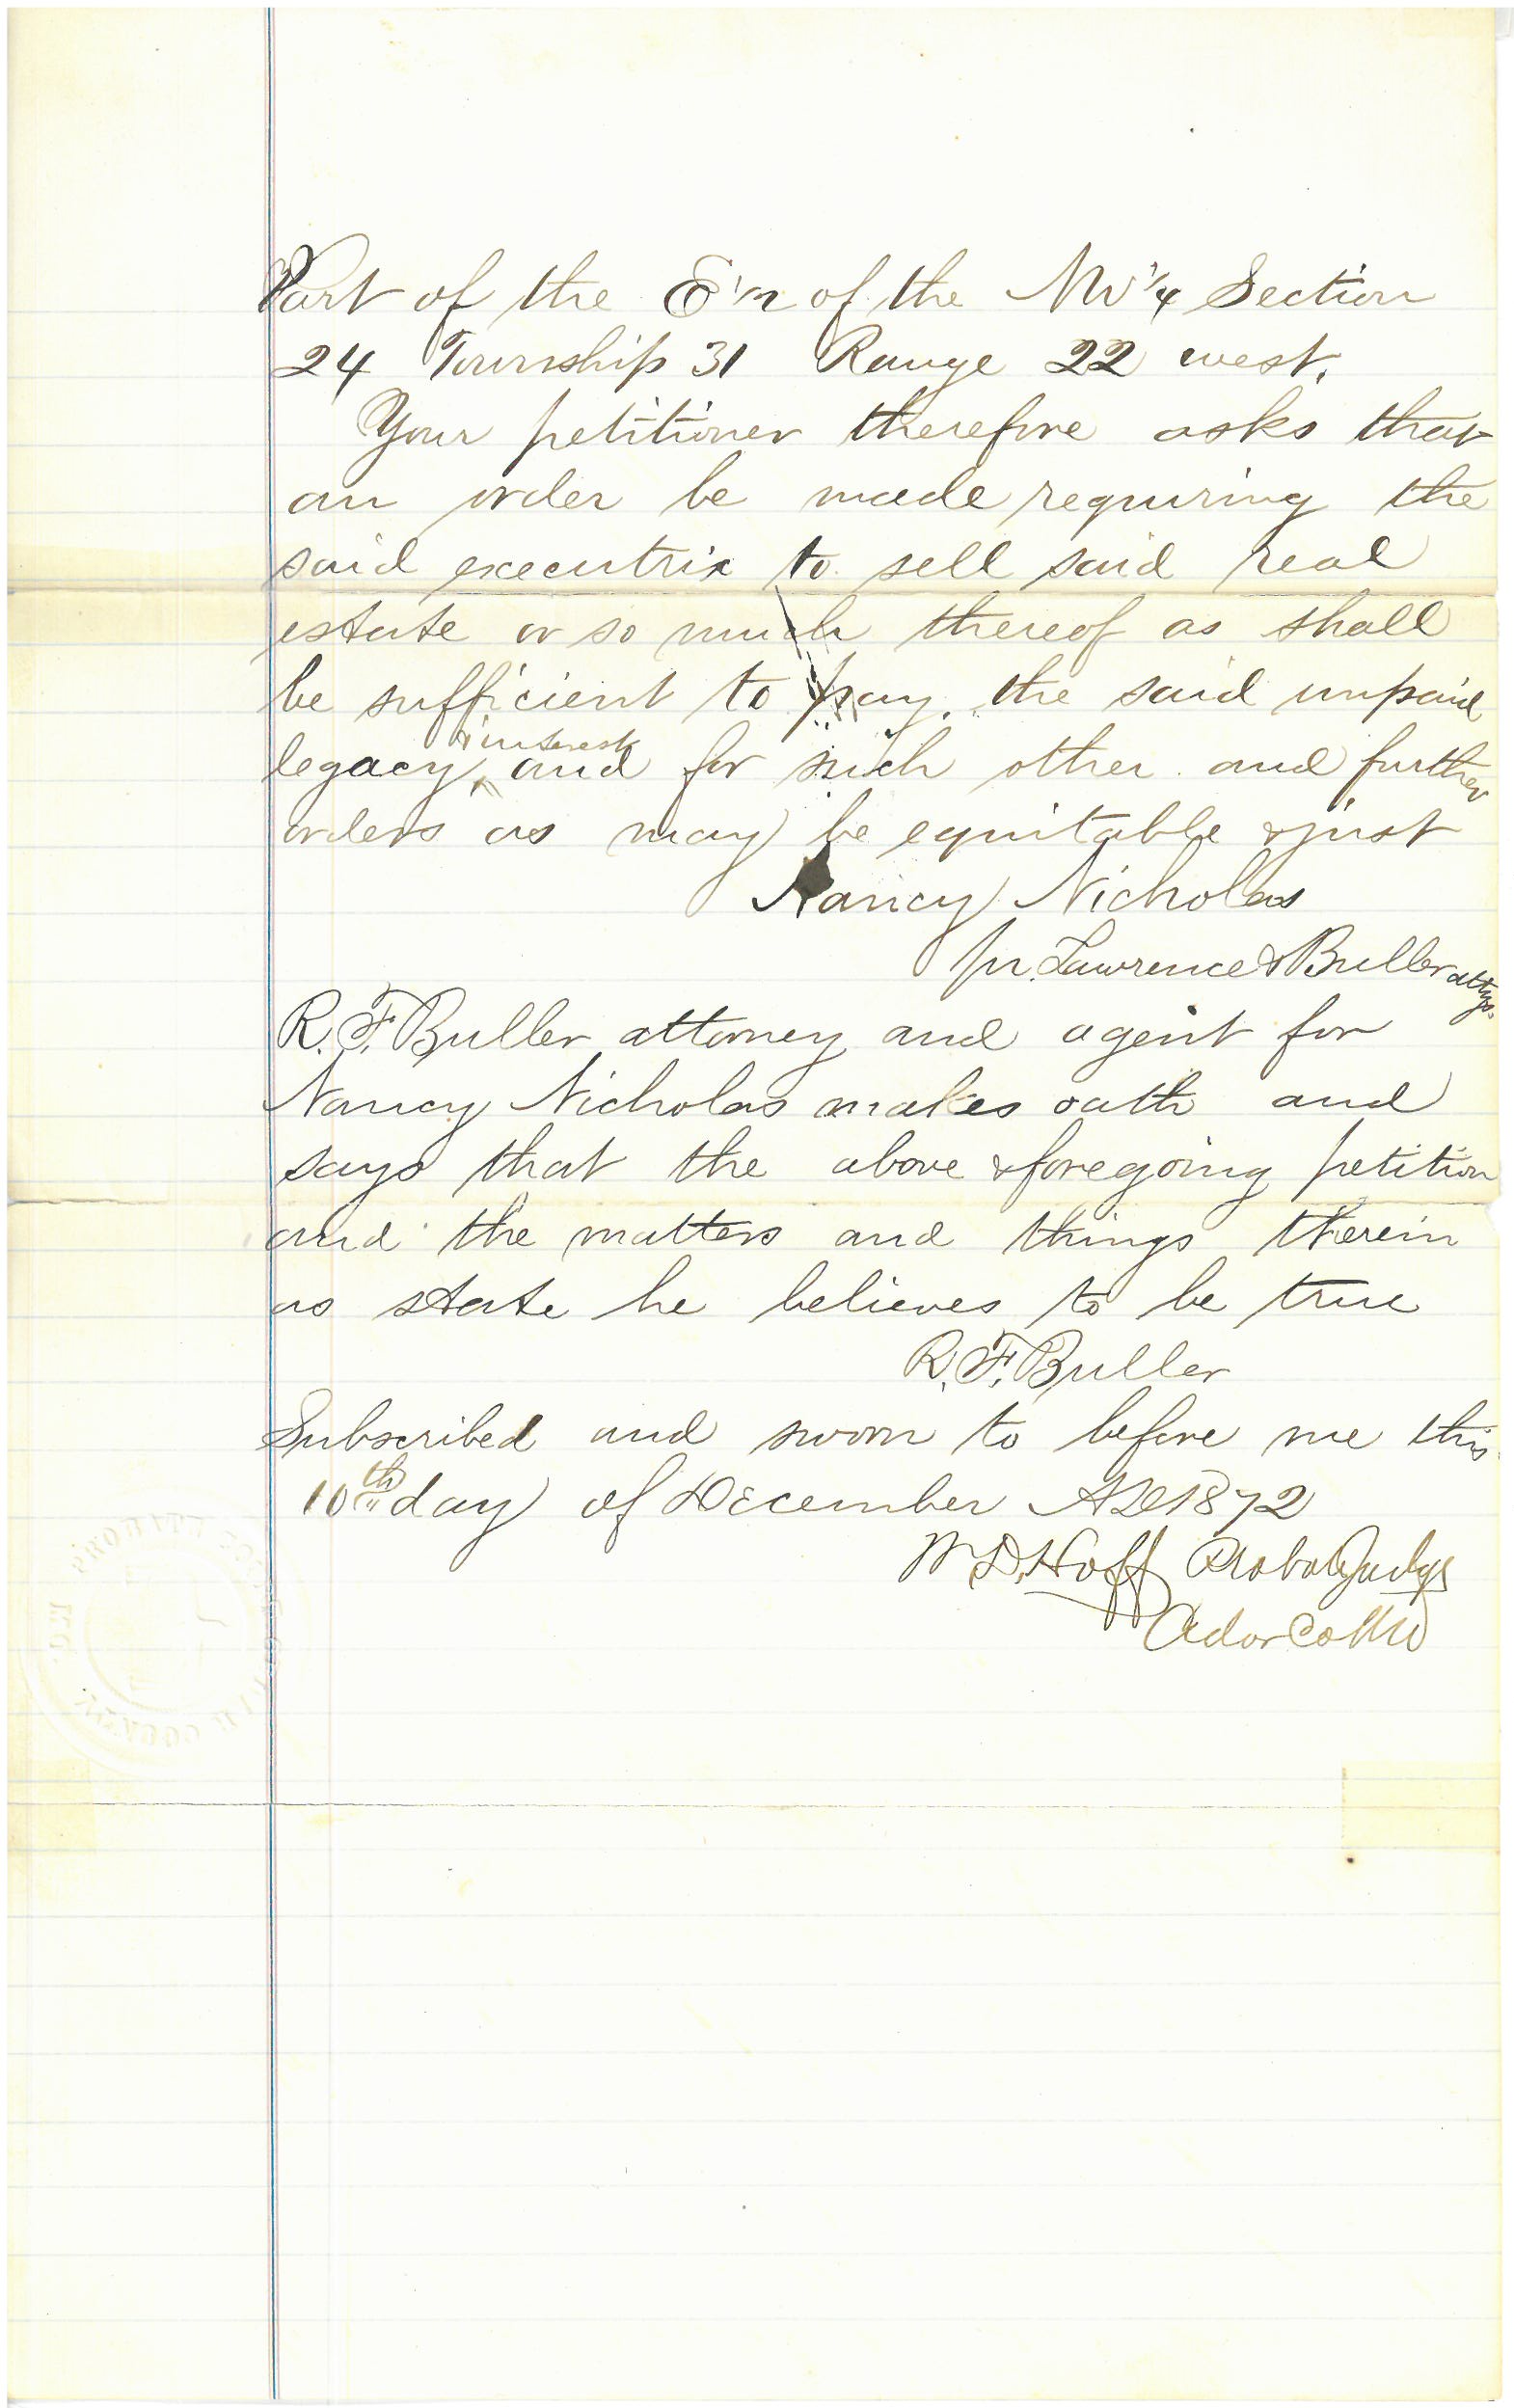 Part of the E 1/2 of the NW 1/4 Section
24 Township 31 Range 22 west.
Your petitioner therefore asks that
an order be made requiring the
said executrix to sell said real
estate or so much thereof as shall
be sufficient to pay. the said unpaid
& interest
legacy ^ and for such other and further
orders as may be equitable & just
Nancy Nicholas
pr. Lawrence & Buller attys.
R. F. Buller attorney and agent for
Nancy Nicholas makes oath and
says that the above & foregoing petition
and the matters and things therein
as state he believes to be true
R. F. Buller
Subscribed and sworn to before me this
10th day of December AD 1872
W D. Hoff Probate Judge
Adair Co Mo
PROBATE COURT ADAIR COUNTY MO.